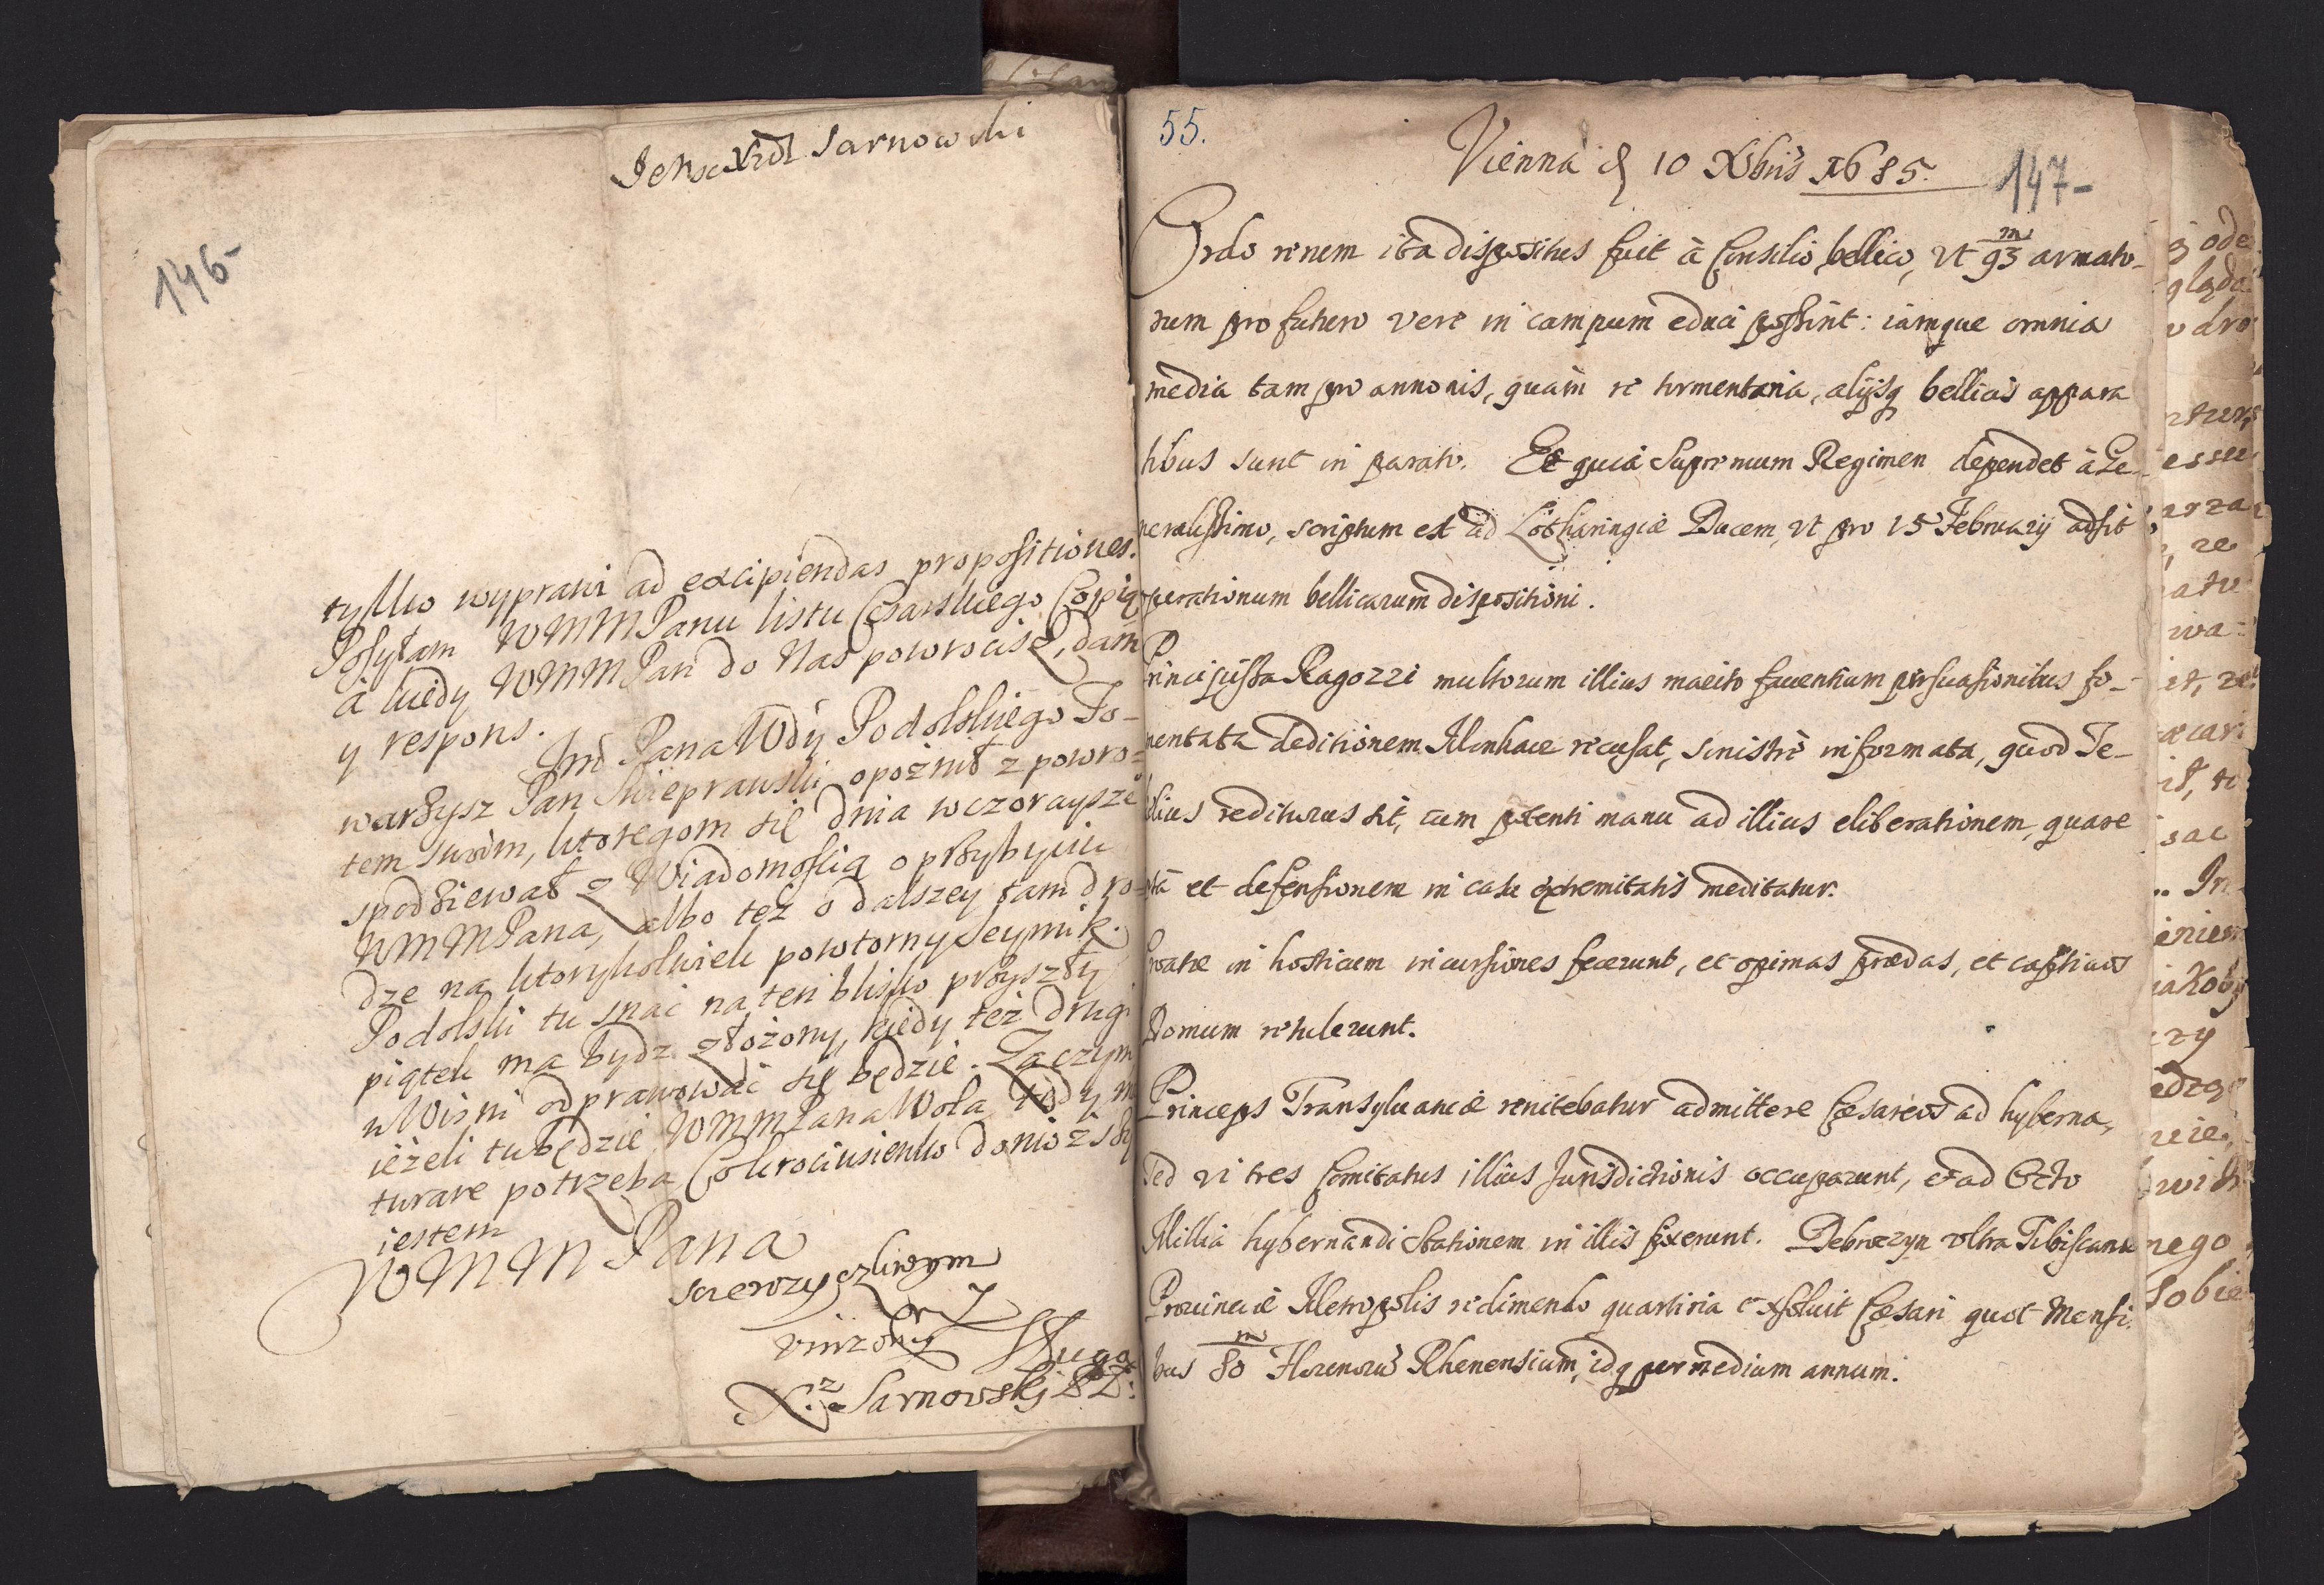 Sarnowski
146-
tylko wyprawi ad excipiendas propositiones.
Posyłam WMMPanu listu Cesarskiego Copią
a kiedy WMMPan do Nas powrocisz, dam
y respons.
Jmć Pana Wdy Podolskiego To-
warzysz Pan opoznił z powro-
tem swoim, ktoregom się dnia wczorayszė
spodziewał z Wiadomoscią o przybyciu
WMMPana, albo też o dalszey tam dro-
dze na ktorykolwiek powtorny Seymik.
Podolski tu snać na ten blisko przyszły
piątek ma bydz złożony, kiedy też drugi
u Wisni odprawować się będzie. Zaczym
ieżeli tu będzie WMMPana Wola
turare potrzeba Cokrociusienko donioższy
iestem
WMMPana
szczerze życzliwym
Sługa
X.z Sarnowski
55.
Vienna d 10 Xbris 1685.
147-
Ordo rerum ita dispositus fuit à Consilio bellico, vt 93 m armato-
rum pro futuro vere in campum educi possint: iamque omnia
media tam pro annonis, quam re tormentaria, alijsq bellicis appara
tibus sunt in parato. Et quia Supremum Regimen dependet à Ge-
neralissimo, scriptum est ad Lotharingiæ Ducem, vt pro 15 February adsit
operationum bellicarum dispositioni.
Principissa Ragozzi multorum illius marito fauentium persuasionibus fo-
mentata deditionem Munkacz recusat, sinistrè informata, quod Te-
klius rediturus sit, cum potenti manu ad illius eliberationem, quare
et defensionem in casu extremitatis meditatur.
Croatæ in hosticum incursiones fecerunt, et opimas prædas, et captiuos
Domum retulerunt.
Princeps Transyluaniæ renitebatur admittere Cæsareos ad hyberna,
sed vi tres Comitatus illius Jurisdictionis occuparunt, et ad Octo
Millia hybernandi stationem in illis fixerunt. Debreczyn vltra Tibiscana
Prouinciæ Metropolis redimendo quartiria exsoluit Cæsari quot Mensi-
bus 80 m Florenorũ Rhenensium, idq per medium annum.